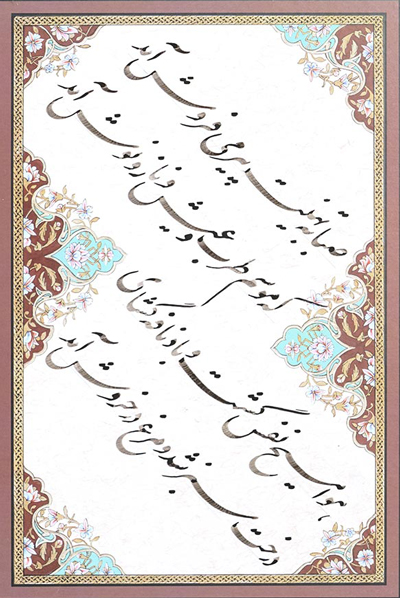 صبا به تهنیت پیر می فروش آمد
که موسم طرب و عیش و ناز و نوش آمد
هوا مسیح نفس گشت و باد نافه گشای
درخت سبز شد و مرغ در خروش آمد